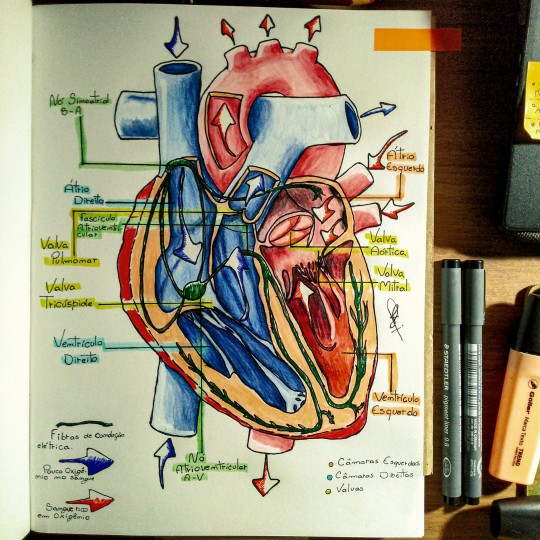 Nó Sinoatrial
S-A
Átrio
Direito
Fascículo
Atrioventri-
cular
Valva
Pulmonar
Valva
Tricúspide
Ventrículo
Direito
Átrio
Esquerdo
Valva
Aórtica
Valva
Mitral
Ventrículo
Esquerdo
Nó
Atrioventricular
A-V
Fibras de Condução
elétrica.
Pouco Oxigê-
nio no sangue
Sangue rico
em Oxigênio
Câmaras Esquerdas
Câmaras Direitas
Valvas
STAEDTLER
pigment liner 0.8
Goller
Marca Texto
TREND